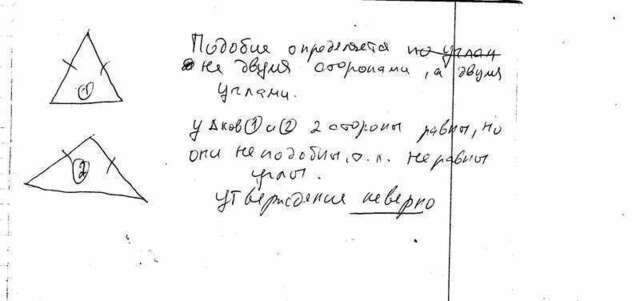 Подобия определяется по углам
не двумя сторонами, а двумя
углами.
У Δков ① и ② 2 стороны равны, но
они не подобны, т.к. не равны
углы.
утверждение неверно
①
②